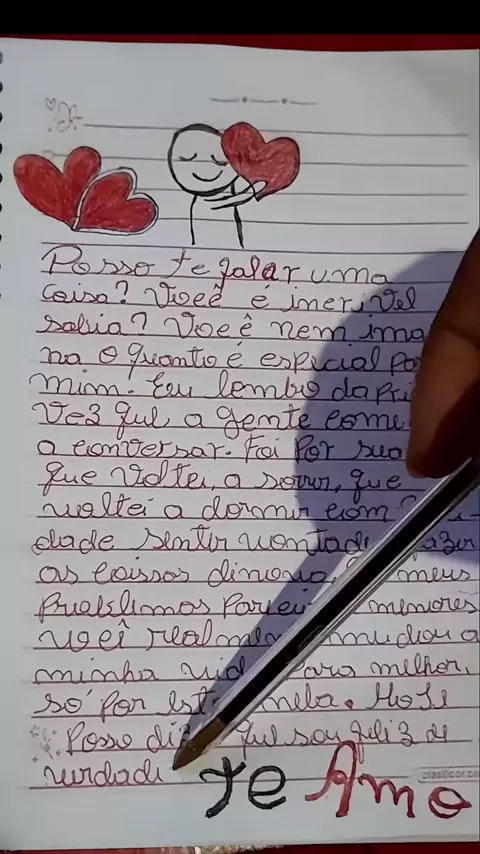 Posso te falar uma
coisa? Você é incrivel
sabia? Você nem ima
na o quanto é espicial pa
mim! Eu lembo da pri
vez que a gente come
a conversar. Foi por sua
que voltei a sorrir, que
voltei a dormir com
dade sentir vontad azer
as coissas di novo, meus
problemas parei menores
você realmen mudou a
minha vid para melhor,
só por est nela. Hoje
Posso diz que sou feliz de
verdade
te Amo